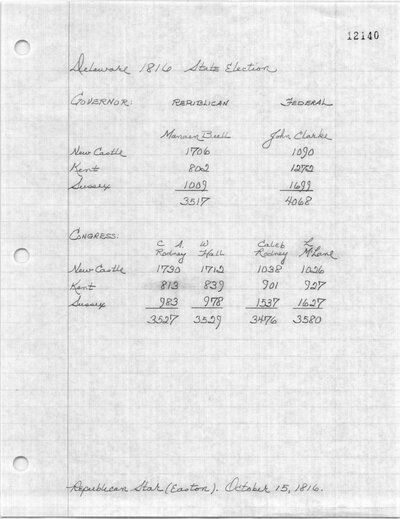 12140
Delaware 1816 State Election
GOVERNOR: REPUBLICAN FEDERAL
Manaen Bull John Clarke
New Castle 1706 1090
Kent 802 1279
Sussex 1009 1699
3517 4068
CONGRESS:
C A. W Caleb L
Rodney Hall Rodney McLane
New Castle 1730 1712 1038 1026
Kent 813 839 901 927
Sussex 983 978 1537 1627
3527 3529 3476 3580
Republican Star (Easton). October 15, 1816.